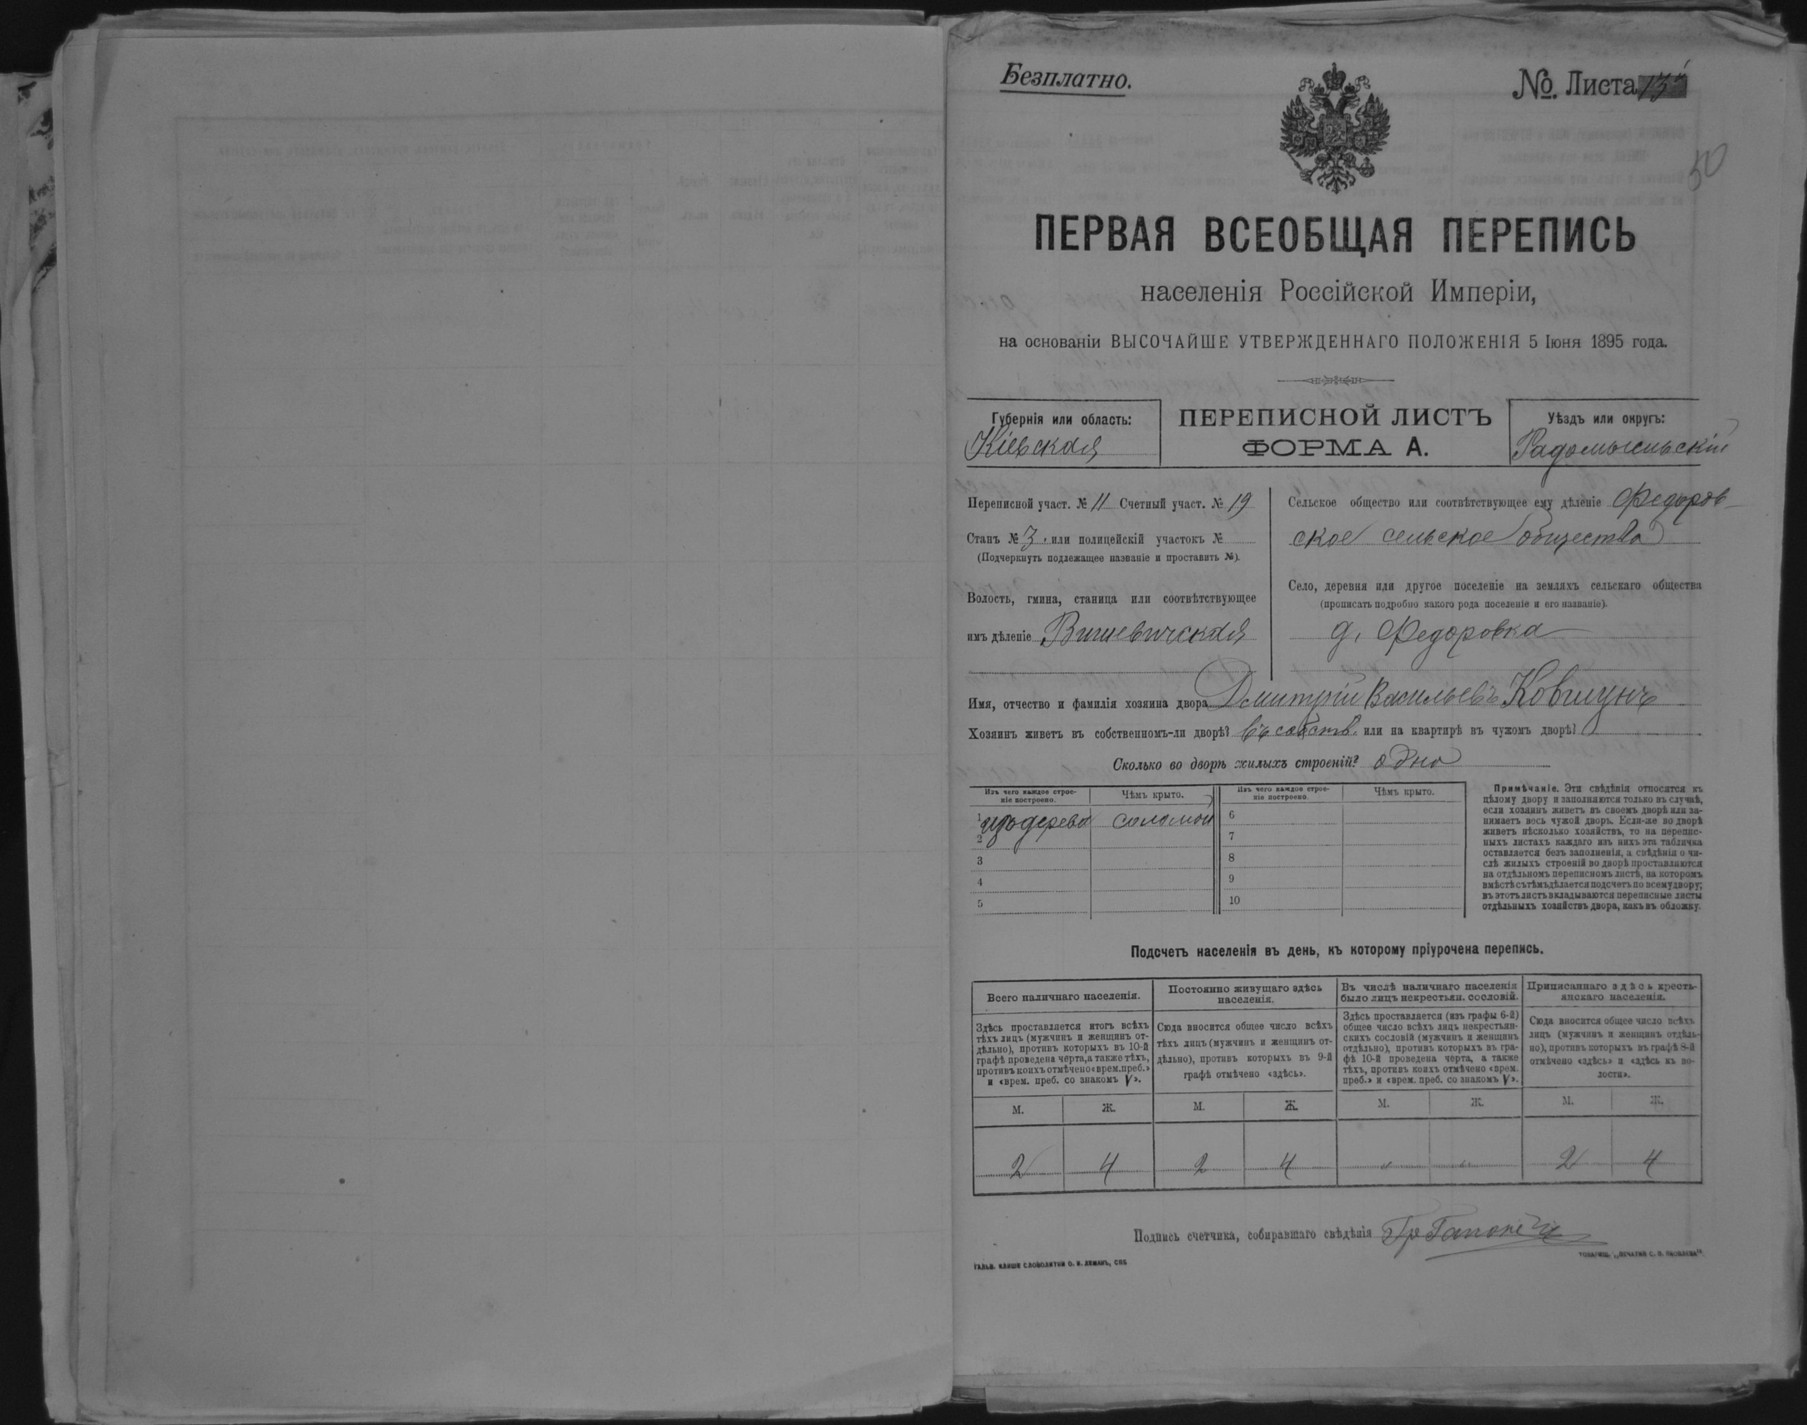 Безплатно.
№ Листа 13
50
ПЕРВАЯ ВСЕОБЩАЯ ПЕРЕПИСЬ
населенія Россійской Имперіи,
на основаніи ВЫСОЧАЙШЕ УТВЕРЖДЕННАГО ПОЛОЖЕНІЯ 5 Іюня 1895 года.
Губернія или область:
Кіевская
ПЕРЕПИСНОЙ ЛИСТЪ
ФОРМА А.
Уѣздъ или округъ:
Радомысльскій
Переписной участ. № 11 Счетный участ. № 19
Станъ № 3. или полицейскій участокъ №
(Подчеркнуть подлежащее названіе и проставить №).
Волость, гмина, станица или соотвѣтствующее
имъ дѣленіе Вишевичская
Сельское общество или соотвѣтствующее ему дѣленіе Федоров-
ское сельское общество
Село, деревня или другое поселеніе на земляхъ сельскаго общества
(прописать подробно какого рода поселеніе и его названіе).
д. Федоровка
Имя, отчество и фамилія хозяина двора Дмитрій Васильевъ Ковтунъ
Хозяинъ живетъ въ собственномъ-ли дворѣ? въ собств. или на квартирѣ въ чужомъ дворѣ?
Сколько во дворѣ жилыхъ строеній? одно
Изъ чего каждое строе-
ніе построено.
Чѣмъ крыто.
Изъ чего каждое строе-
ніе построено.
Чѣмъ крыто.
1 изъ дерева соломой
2
3
4
5
6
7
8
9
10
Примѣчаніе. Эти свѣдѣнія относятся къ
цѣлому двору и заполняются только въ случаѣ,
если хозяинъ живетъ въ своемъ дворѣ или за-
нимаетъ весь чужой дворъ. Если-же во дворѣ
живетъ нѣсколько хозяйствъ, то на перепис-
ныхъ листахъ каждаго изъ нихъ эта табличка
оставляется безъ заполненія, а свѣдѣнія о чи-
слѣ жилыхъ строеній во дворѣ проставляются
на отдѣльномъ переписномъ листѣ, на которомъ
вмѣстѣ съ тѣмъ дѣлается подсчетъ по всему двору;
въ этотъ листъ вкладываются переписные листы
отдѣльныхъ хозяйствъ двора, какъ въ обложку.
Подсчетъ населенія въ день, къ которому пріурочена перепись.
Всего наличнаго населенія.
Постоянно живущаго здѣсь
населенія.
Въ числѣ наличнаго населенія
было лицъ некрестьян. сословій.
Приписаннаго здѣсь кресть-
янскаго населенія.
Здѣсь проставляется итогъ всѣхъ
тѣхъ лицъ (мужчинъ и женщинъ от-
дѣльно), противъ которыхъ въ 10-й
графѣ проведена черта, а также тѣхъ,
противъ коихъ отмѣчено «врем. преб.»
и «врем. преб. со знакомъ V».
Сюда вносится общее число всѣхъ
тѣхъ лицъ (мужчинъ и женщинъ от-
дѣльно), противъ которыхъ въ 9-й
графѣ отмѣчено «здѣсь».
Здѣсь проставляется (изъ графы 6-й)
общее число всѣхъ лицъ некрестьян-
скихъ сословій (мужчинъ и женщинъ
отдѣльно), противъ которыхъ въ гра-
фѣ 10-й проведена черта, а также
тѣхъ, противъ коихъ отмѣчено «врем.
преб.» и «врем. преб. со знакомъ V».
Сюда вносится общее число всѣхъ
лицъ (мужчинъ и женщинъ отдѣль-
но), противъ которыхъ въ графѣ 8-й
отмѣчено «здѣсь» и «здѣсь въ во-
лости».
М. Ж. М. Ж. М. Ж. М. Ж.
2 4 2 4 " " 2 4
Подпись счетчика, собиравшаго свѣдѣнія
ГАЛЬВ. КЛИШЕ СЛОВОЛИТНИ О. И. ЛЕМАНЪ, СПБ.
ТОВАРИЩ. „ПЕЧАТНЯ С. П. ЯКОВЛЕВА".